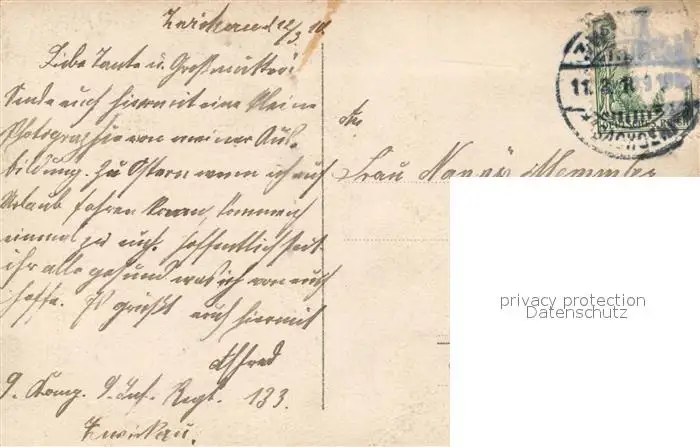 Zwickau d 12/3. 10.
Liebe Tante u. Großmutter!
Sende euch hiermit eine kleine
Photographie von meiner Aus-
bildung. Zu Ostern wenn ich auf
Urlaub fahren kann, komme ich
einmal zu euch. Hoffentlich seit
ihr alle gesund was ich von euch
hoffe. Es grüßt euch hiermit
Alfred
9. Komp. 9. Inf. Regt. 133.
Zwickau.
An
Frau
privacy protection
Datenschutz